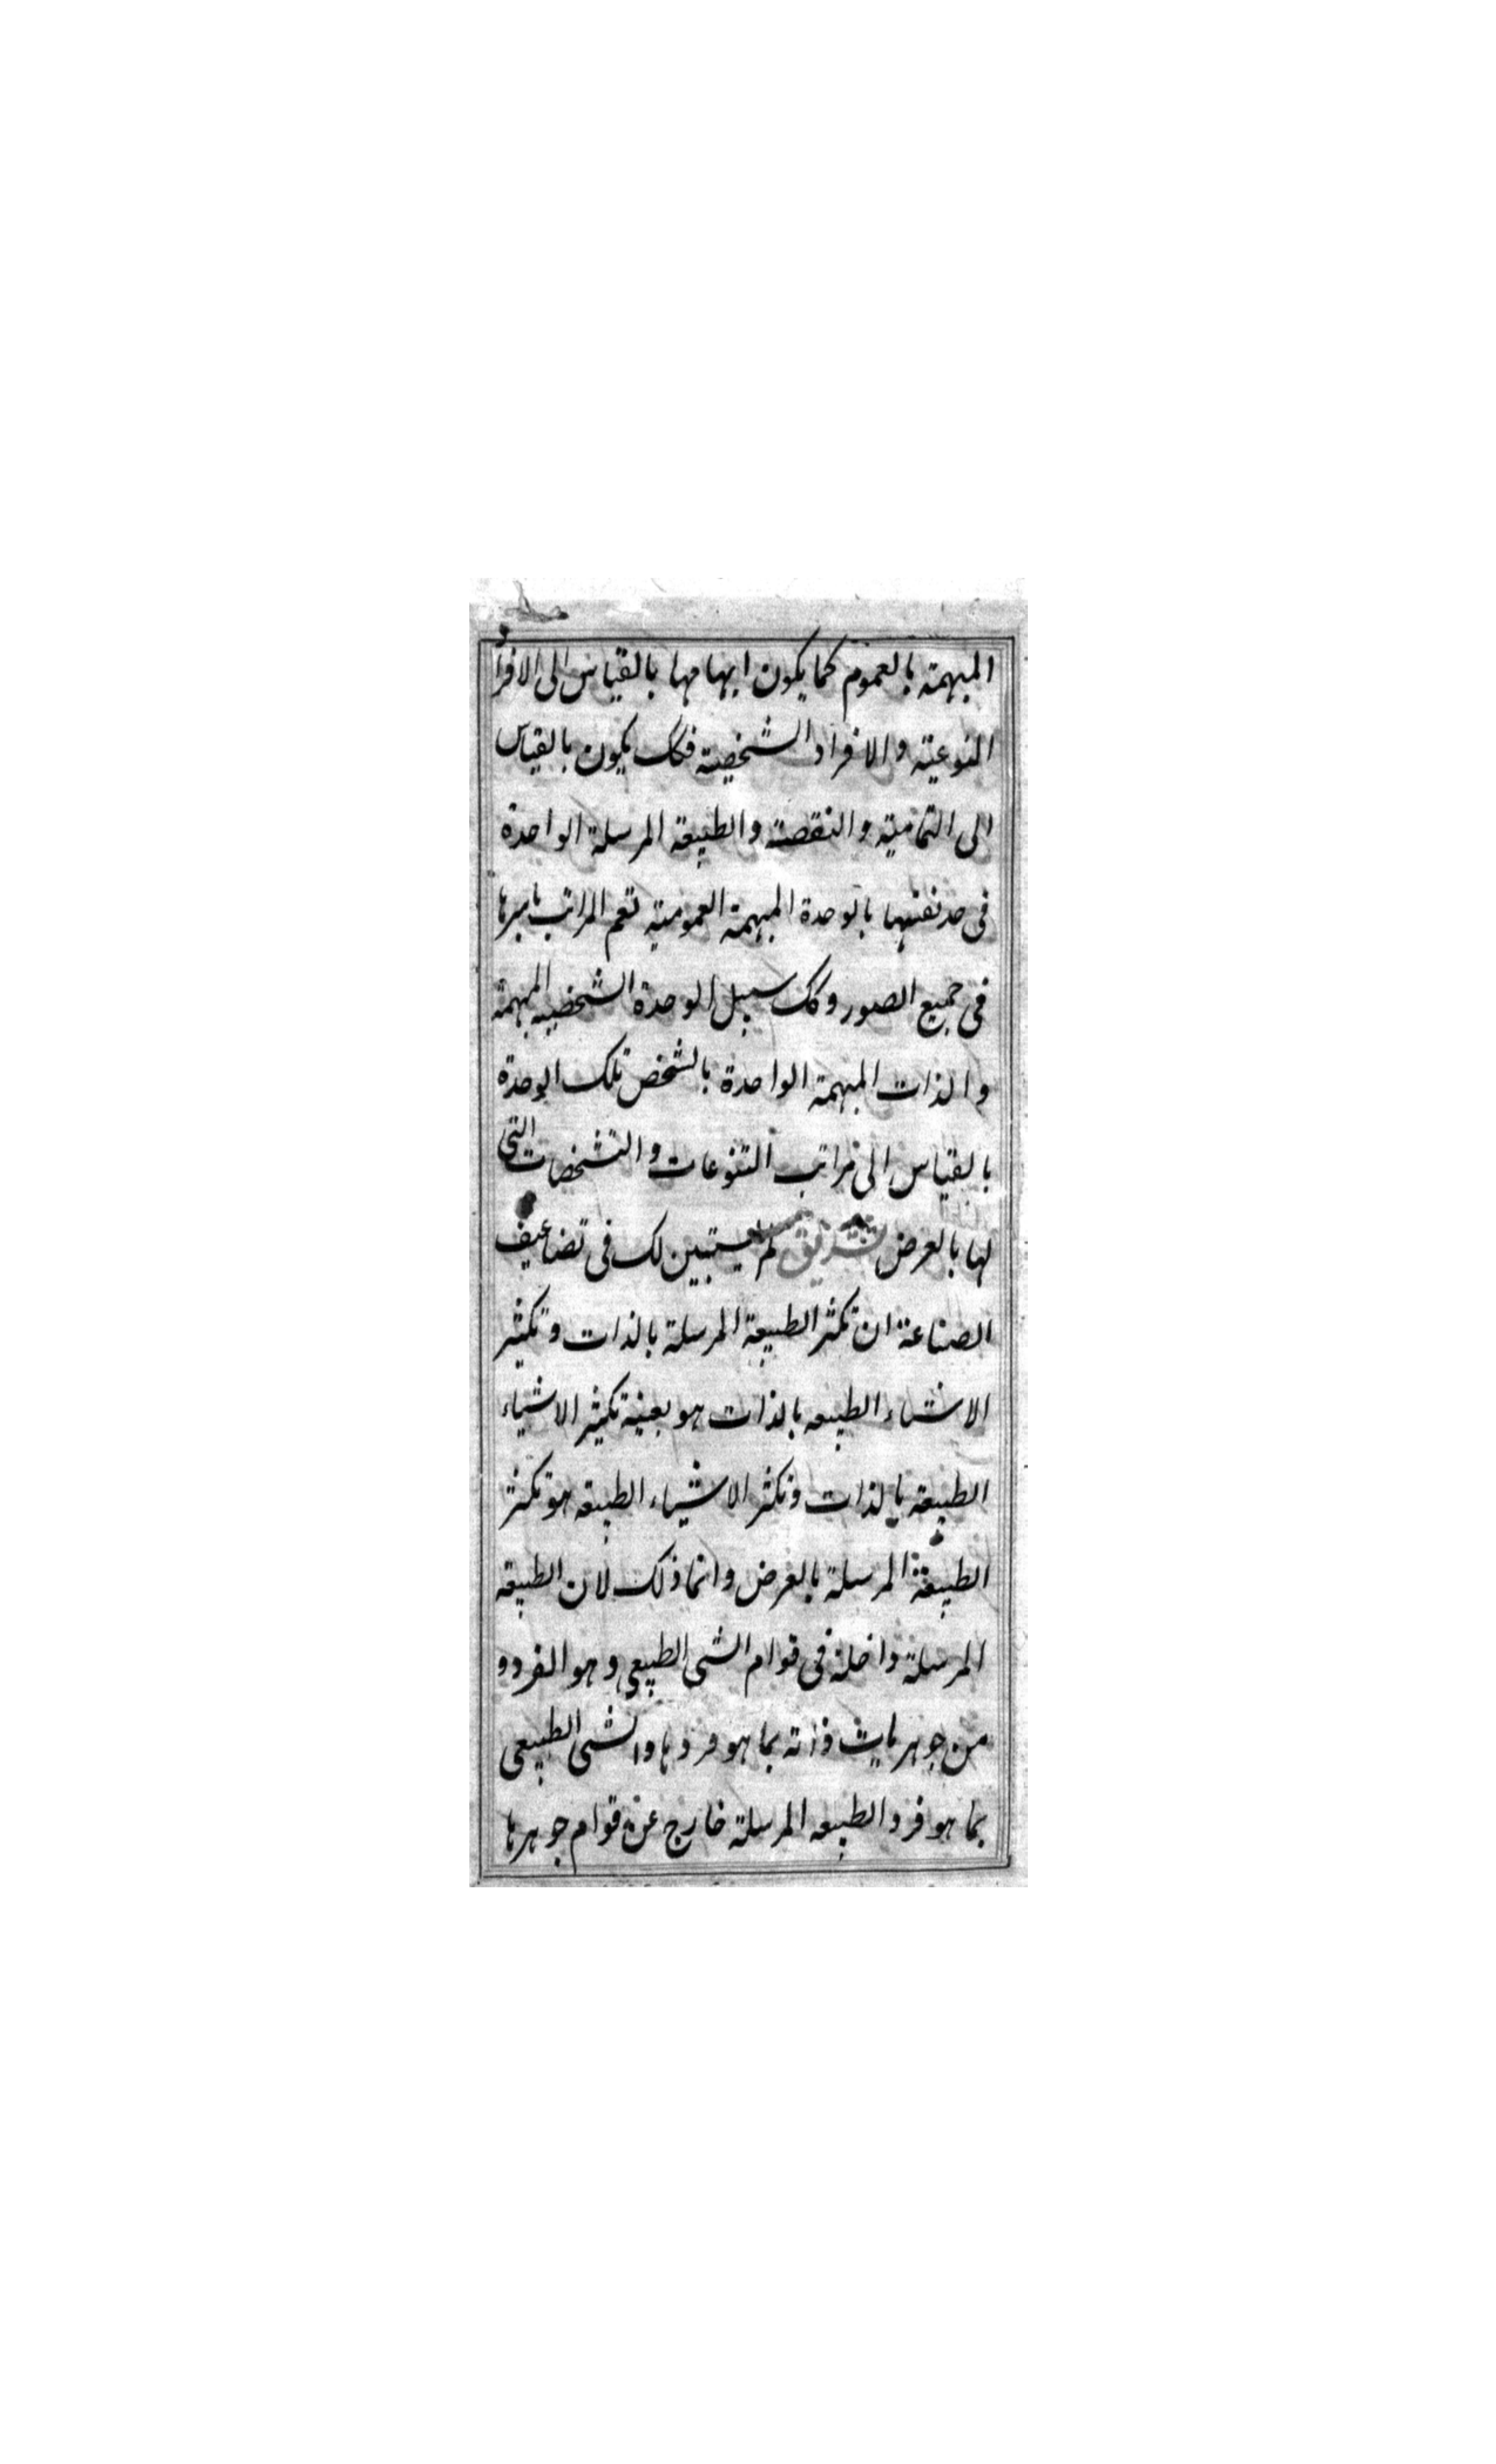 المبهمة بالعموم كما يكون ابهامها بالقياس الى الافراد
النوعية والافراد الشخصية فكك يكون بالقياس
الى التمامية والنقصة والطبيعة المرسلة الواحدة
فى حد نفسها بالوحدة المبهمة العمومية تعم المراتب باسرها
فى جميع الصور وكك سبيل الوحدة الشخصية المبهمة
والذات المبهمة الواحدة بالشخص تلك الوحدة
بالقياس الى مراتب التنوعات والتشخصات التى
لها بالعرض تشريق لم يستبين لك فى تضاعيف
الصناعة ان تكثر الطبيعة المرسلة بالذات وتكثير
الاشياء الطبيعه بالذات هو بعينه تكثير الاشياء
الطبيعه بالذات وتكثر الاشياء الطبيعه هو تكثر
الطبيعة المرسلة بالعرض وانما ذلك لان الطبيعه
المرسلة داخلة فى قوام الشى الطبيعى وهو الفرد و
من جوهريات ذاته بما هو فردها والشى الطبيعى
بما هو فرد الطبيعه المرسلة خارج عن قوام جوهرها